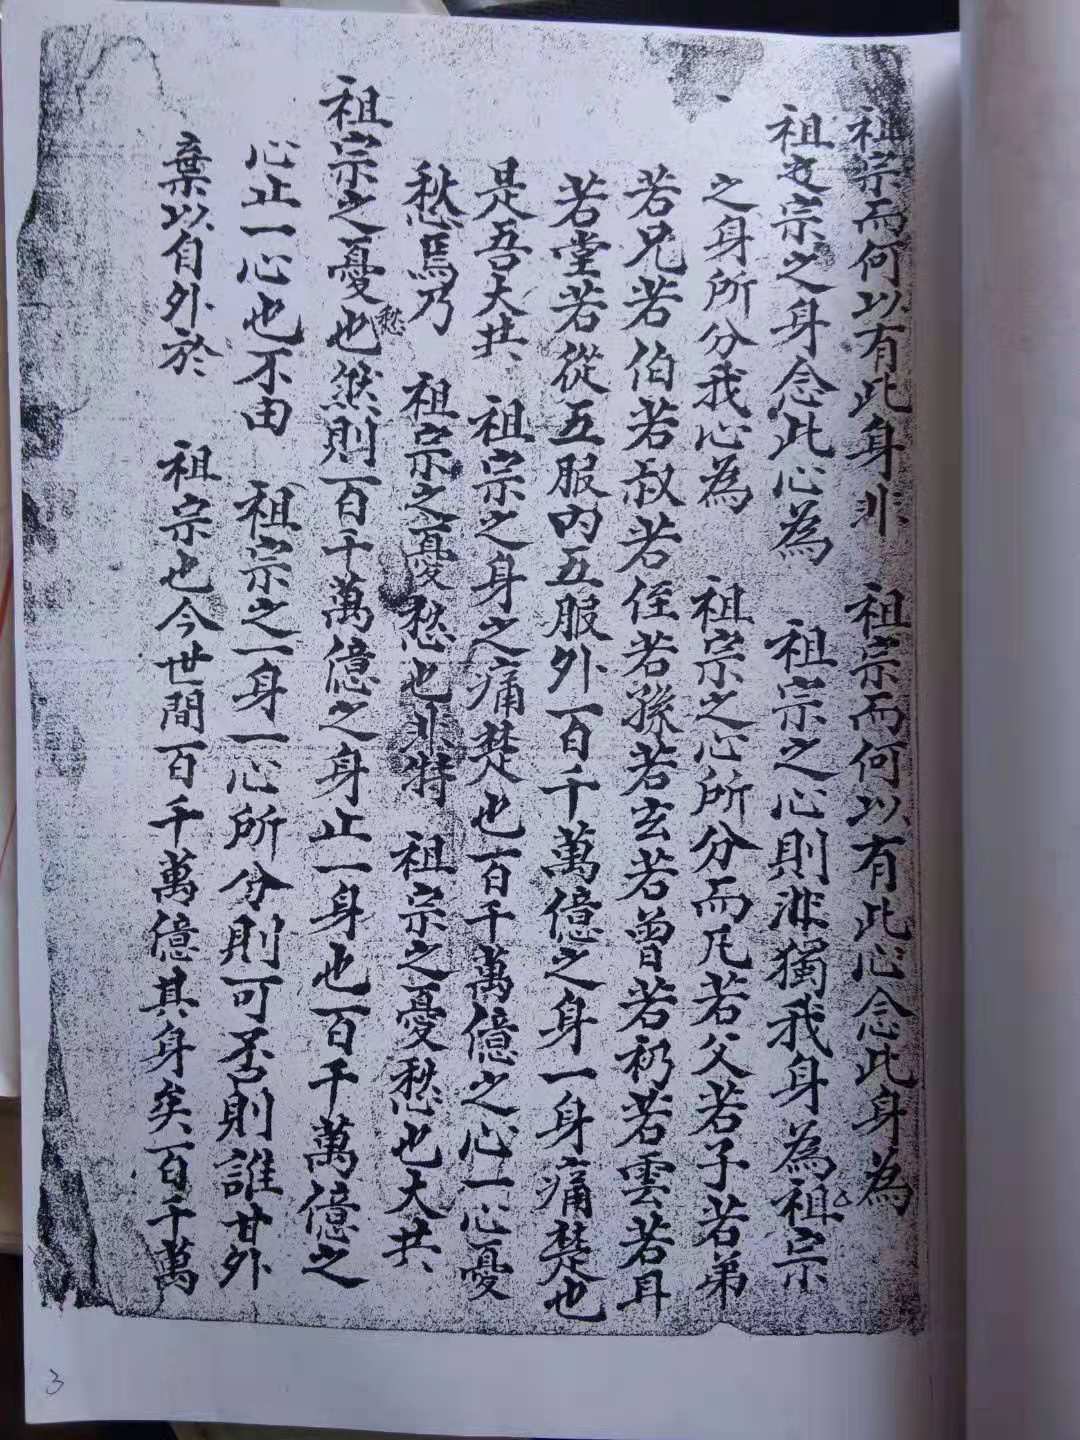 祖宗而何以有此身非　祖宗而何以有此心念此身為
祖之宗之身念此心為　祖宗之心則非獨我身為祖宗
之身所分我心為　祖宗之心所分而凡若父若子若弟
若兄若伯若叔若侄若孫若玄若曾若礽若雲若耳
若堂若從五服内五服外一百千萬億之身一身痛楚也
是吾大共　祖宗之身之痛楚也一百千萬億之心一心憂
愁焉乃　祖宗之憂愁也非特　祖宗之憂愁也大共
祖宗之憂愁也然則一百千萬億之身止一身也一百千萬億之
心止一心也不由　祖宗之一身一心所分則可否則誰甘外
棄以自外於　祖宗也今世間百千萬億其身矣百千萬
3